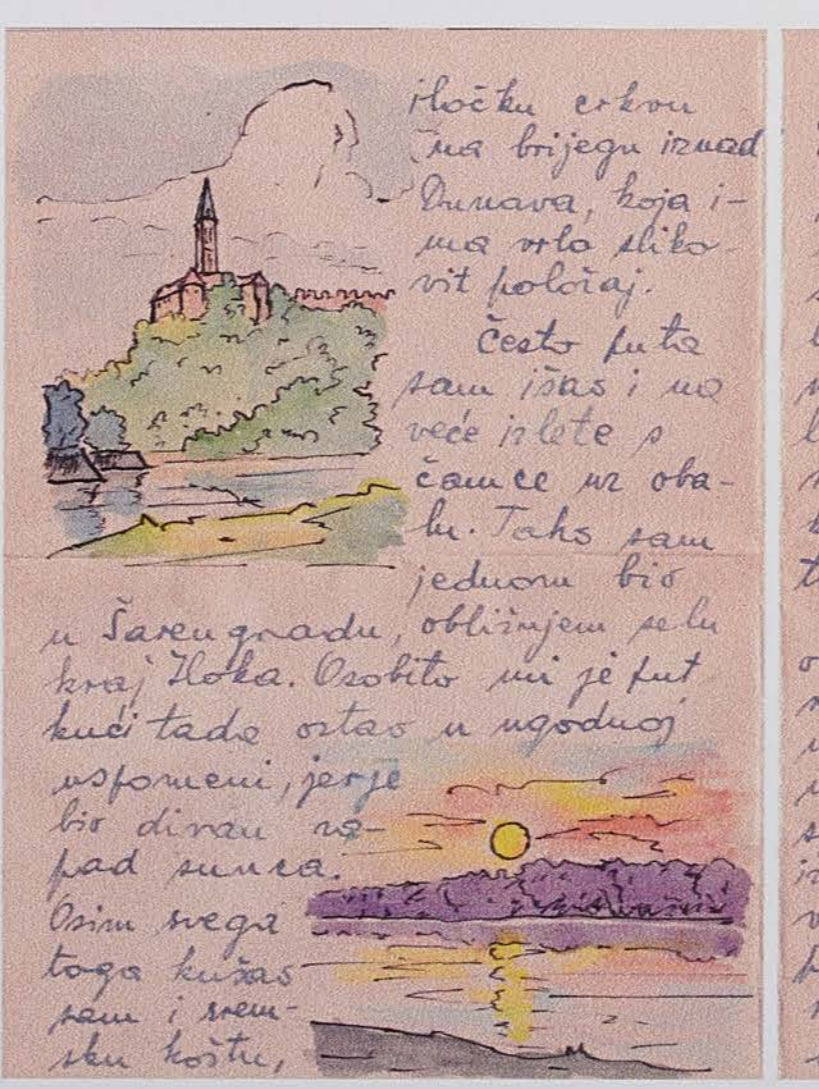 iločku crkvu
na brijegu iznad
Dunava, koja i-
ma vrlo sliko-
vit položaj.
Često puta
sam išao i na
veće izlete s
čamce uz oba-
lu. Tako sam
jednom bio
u Šarengradu, obližnjem selu
kraj Iloka. Osobito mi je put
kući tada ostao u ugodnoj
uspomeni, jer je
bio divan za-
pad sunca.
Osim svega
toga kušao
sam i srem-
sku koštu,